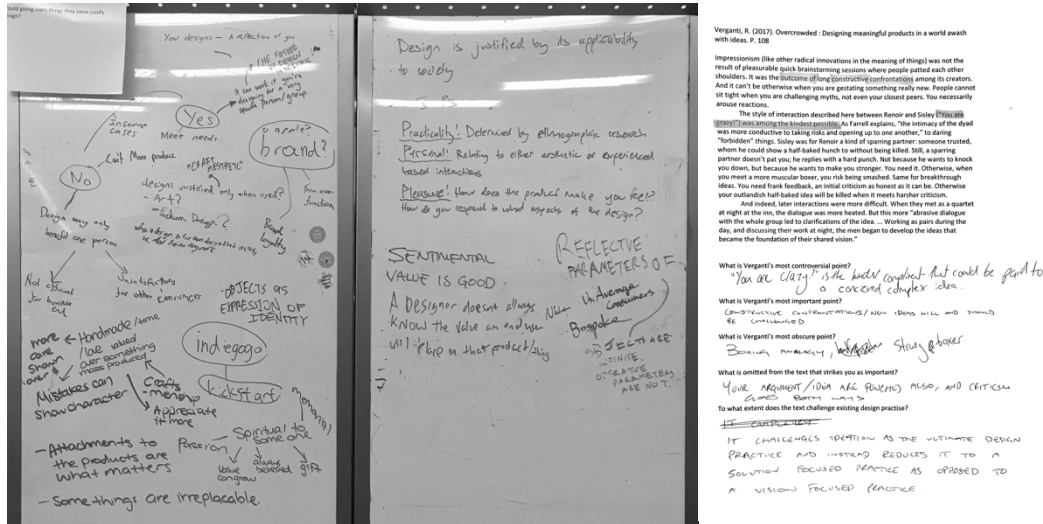 ould giving users things they value justify
sign?
Your designs - A reflection of you
THE FUTURE
OF DESIGN
It can work if you're
designing for a very
specific person/group.
Yes
In some
cases
Meet needs
brand?
Can't mass produce
No
"CRAFT
AESTHETIC"
designs justified only when used?
- Art?
- Fashion Design?
form over
function
Brand
loyalty
Design may only
benefit one person
Not
for business
end
Unsatisfactory
for other consumers
OBJECTS AS
EXPRESSION OF
IDENTITY
indegogo
kickstart
more
care
shown
over
Handmade/time
/love valued
over something
mass produced
Mistakes can
show character
Crafts
-menship
Appreciate
it more
memorial
Spiritual to
someone
Passion
Value
can grow
always
beloved
gift
- Attachments to
the products are
what matters
- Some things are irreplacable.
Design is justified by its applicability
to society
3 Ps
Practicality! Determined by ethnographic research
Personal! Relating to either aesthetic or experienced
based interactions
Pleasure! How does the product make you feel?
How do you respond to what aspects of the design?
SENTIMENTAL
VALUE IS GOOD.
A Designer doesnt always
KNOW the value an end user
will place on that product/thing
REFLECTIVE
PARAMETERS OF
Vs. Average
Consumers
Bespoke
OBJECTS ARE
INFINITE,
PARAMETERS
ARE NOT.
Verganti, R. (2017). Overcrowded : Designing meaningful products in a world awash
with ideas. P. 108
Impressionism (like other radical innovations in the meaning of things) was not the
result of pleasurable quick brainstorming sessions where people patted each other
shoulders. It was the outcome of long constructive confrontations among its creators.
And it can't be otherwise when you are gestating something really new. People cannot
sit tight when you are challenging myths, not even your closest peers. You necessarily
arouse reactions.
The style of interaction described here between Renoir and Sisley ("You are
crazy!") was among the kindest possible. As Farrell explains, "the intimacy of the dyad
was more conductive to taking risks and opening up to one another," to daring
"forbidden" things. Sisley was for Renoir a kind of sparring partner: someone trusted,
whom he could show a half-baked hunch to without being killed. Still, a sparring
partner doesn't pat you; he replies with a hard punch. Not because he wants to knock
you down, but because he wants to make you stronger. You need it. Otherwise, when
you meet a more muscular boxer, you risk being smashed. Same for breakthrough
ideas. You need frank feedback, an initial criticism as honest as it can be. Otherwise
your outlandish half-baked idea will be killed when it meets harsher criticism.
And indeed, later interactions were more difficult. When they met as a
quartet at night at the inn, the dialogue was more heated. But this more "abrasive dialogue
with the whole group led to clarifications of the idea. ... Working as pairs during the
day, and discussing their work at night, the men began to develop the ideas that
became the foundation of their shared vision."
What is Verganti's most controversial point?
"You are crazy!" is the kindest compliment that could be paid to
a concerned complex idea.
What is Verganti's most important point?
CONSTRUCTIVE CONFRONTATIONS/NEW IDEAS WILL AND SHOULD
BE CHALLENGED
What is Verganti's most obscure point?
BOXING ANALOGY, Strong boxer
What is omitted from the text that strikes you as important?
YOUR ARGUMENT/IDEA ARE PUNCHES ALSO, AND CRITICISM
GOES BOTH WAYS
To what extent does the text challenge existing design practise?
IT COMPLETELY
IT CHALLENGES IDEATION AS THE ULTIMATE DESIGN
PRACTICE AND INSTEAD REDUCES IT TO A
SOLUTION FOCUSED PRACTICE AS OPPOSED TO
A VISION FOCUSED PRACTICE